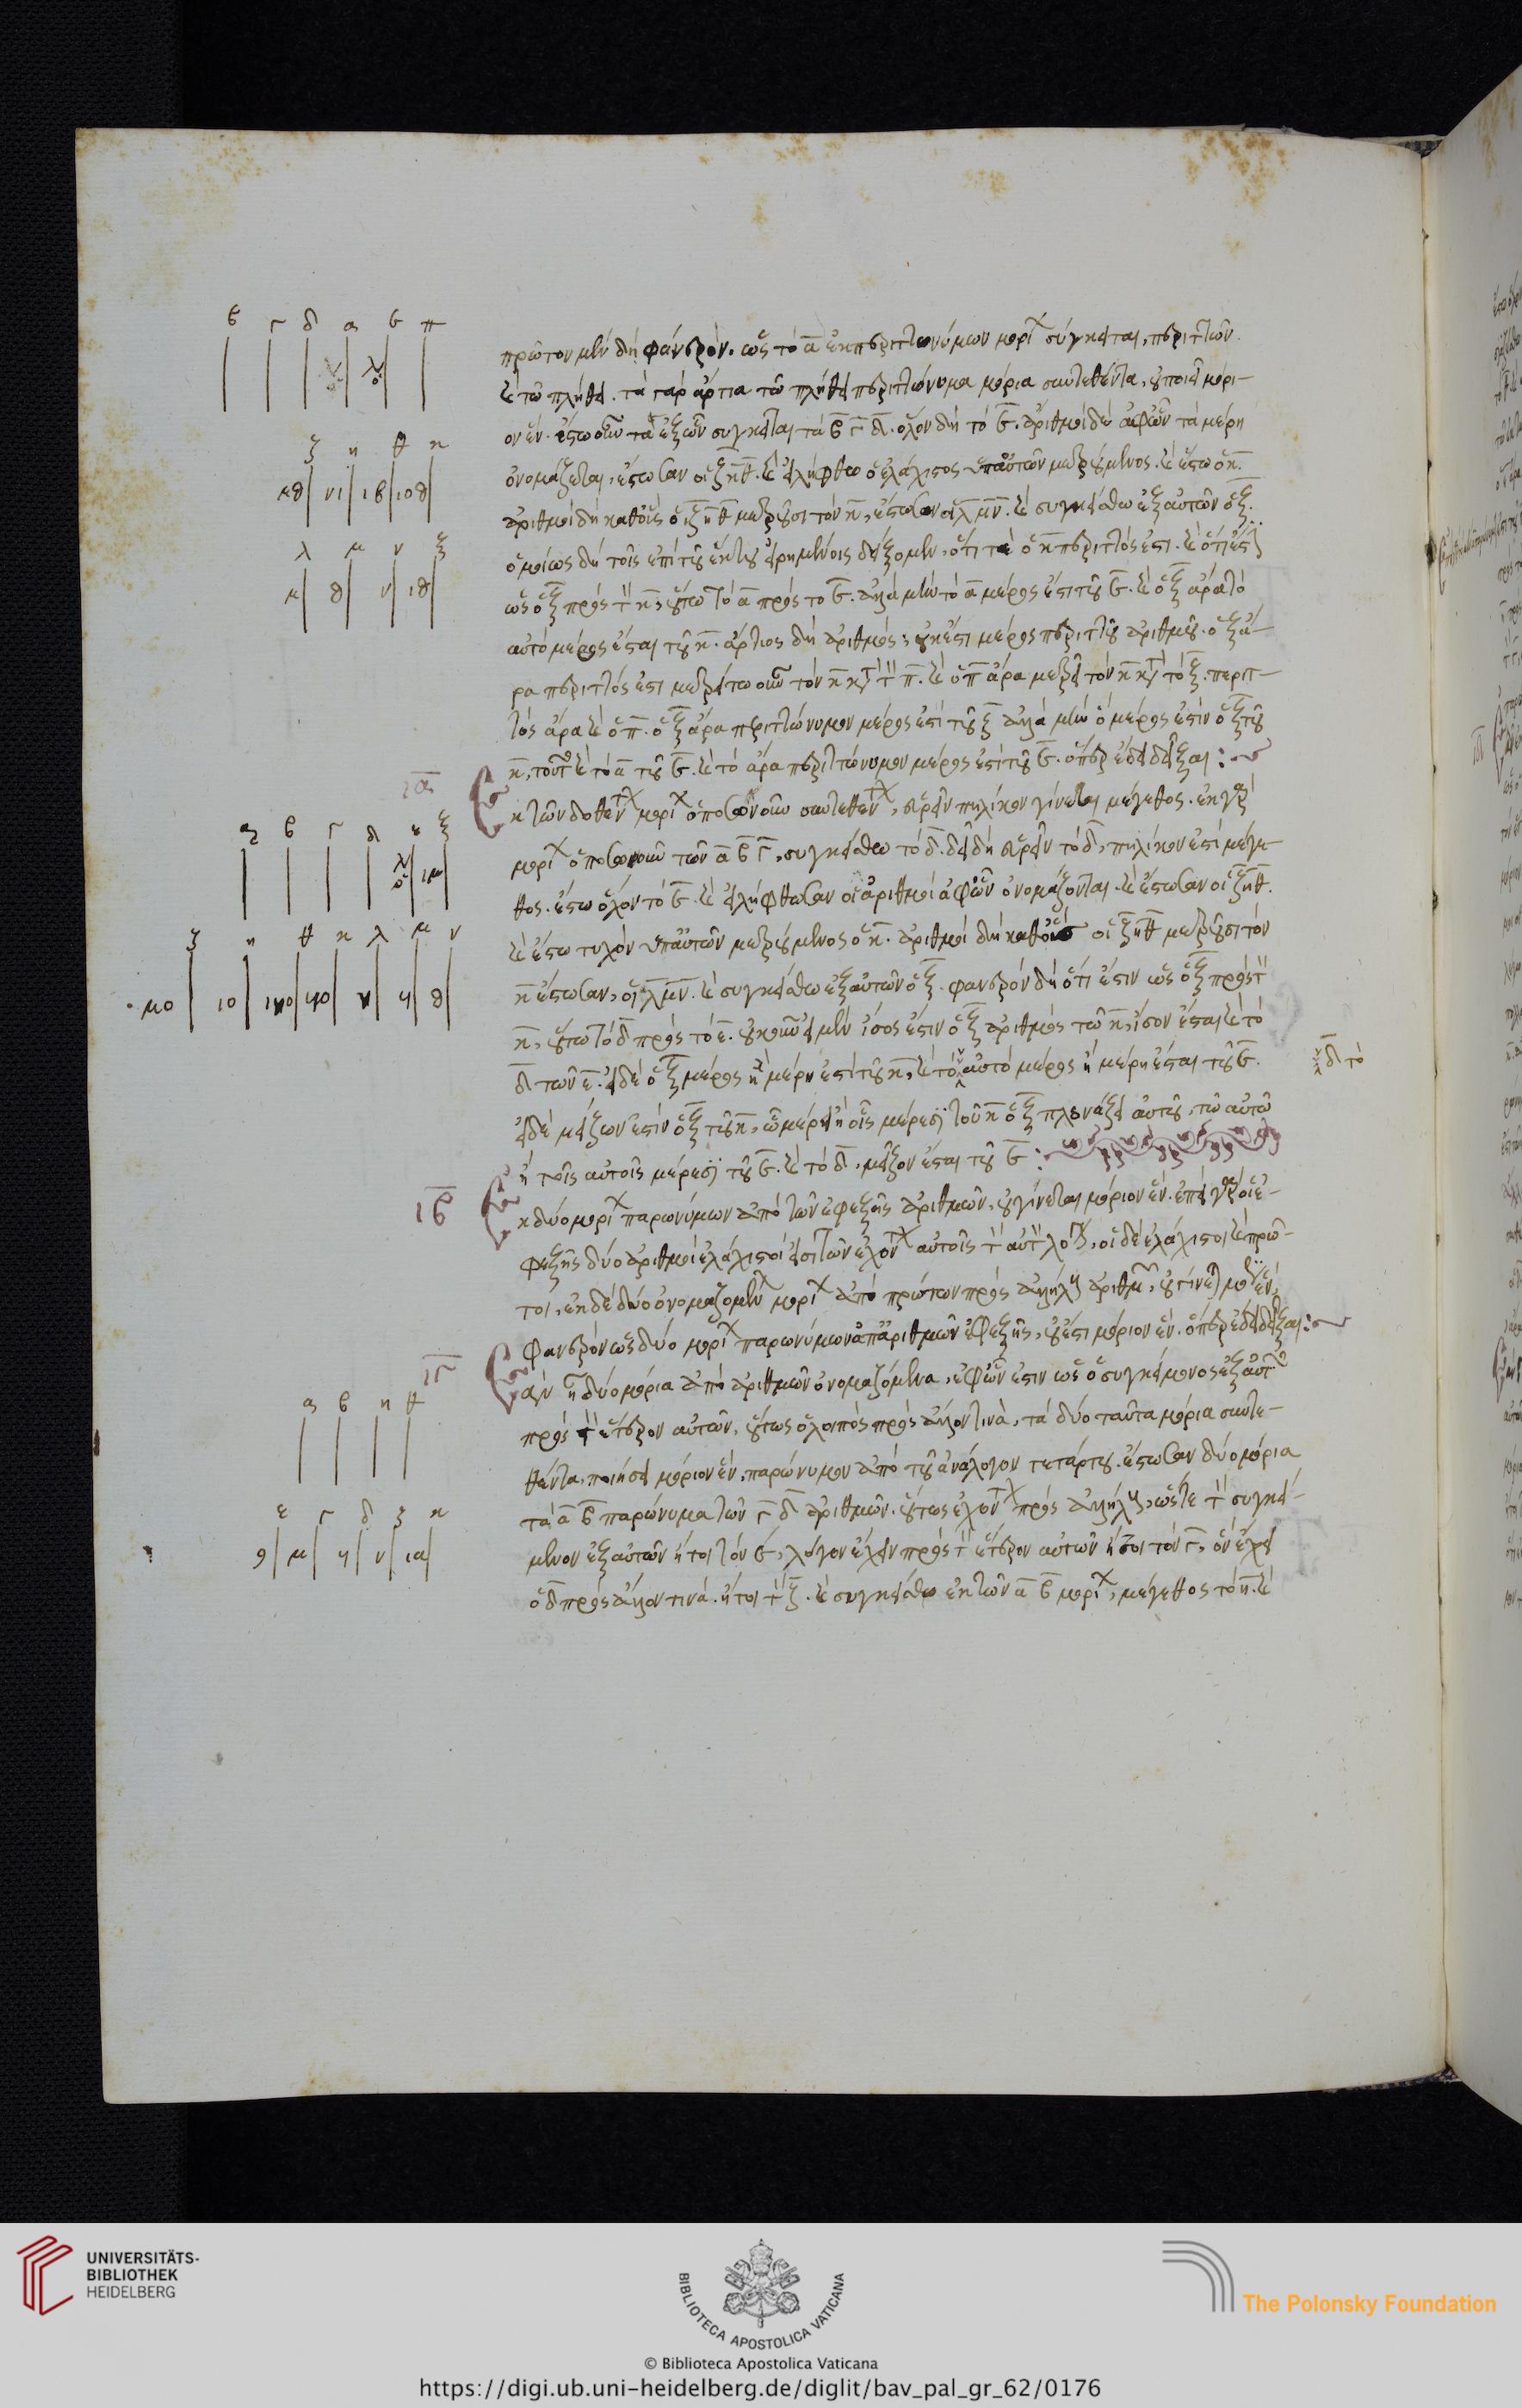 πρῶτον μὲν δὴ φανερόν, ὡς τὸ α ἐκ περιττωνύμων μορί σύγκειται, περιττῶν
καὶ τῷ πλήθει. τὰ γὰρ ἄρτια τῷ πλήθει περιττώνυμα μόρια συντεθέντα, οὐ ποιεῖ μόρι-
ον ἕν. ἔστω οὖν τὰ ἐξ ὧν σύγκειται τὰ β γ δ. ὅλον δὴ τὸ ϛ. ἀριθμοὶ δὲ ἀφ' ὧν τὰ μέρη
ὀνομάζεται, ἔστωσαν οἱ ζ η θ. καὶ εἰλήφθω ὁ ἐλάχιστος ὑπ' αὐτῶν μετρούμενος. καὶ ἔστω ὁ κ.
ἀριθμοὶ δὴ καθ' οὓς οἱ ζ η θ μετροῦσι τὸν κ, ἔστωσαν οἱ λ μ ν. καὶ συγκείσθω ἐξ αὐτῶν ὁ ξ.
ὁμοίως δὴ τοῖς ἐπὶ τοῦ εἰρημένοις δείξομεν, ὅτι ὁ κ περιττός ἐστι. καὶ ὅτι ἐστὶ
ὡς ὁ ξ πρὸς τὸν κ, οὕτω τὸ α πρὸς τὸ ϛ. ἀλλὰ μὴν τὸ α μέρος ἐστὶ τοῦ ϛ. καὶ ὁ ξ ἄρα τὸ
αὐτὸ μέρος ἐστι τοῦ κ. ἄρτιος δὴ ἀριθμός, οὐκ ἔστι μέρος περιττοῦ ἀριθμοῦ. ὁ ξ ἄ-
ρα περιττός ἐστι μετρείτω οὖν τὸν κ κατὰ τὸν π. καὶ ὁ π ἄρα μετρεῖ τὸν κ κατὰ τὸν ξ. περιτ-
τὸς ἄρα καὶ ὁ π. ὁ ξ ἄρα περιττώνυμον μέρος ἐστὶ τοῦ ξ ἀλλὰ μὴν ὃ μέρος ἐστὶν ὁ ξ τοῦ
κ, τοῦτο καὶ τὸ α τοῦ ϛ. καὶ τὸ ἄρα περιττώνυμον μέρος ἐστὶ τοῦ ϛ. ὅπερ ἔδει δεῖξαι :~
ια
Ἐκ τῶν δοθέντων μορί ὁποσωνοῦν συντεθέντων, εὑρεῖν πηλίκον γίνεται μέγεθος. ἐκ γὰρ
μορί ὁποσωνοῦν τῶν α β γ, συγκείσθω τὸ δ. δεῖ δὴ εὑρεῖν τὸ δ, πηλίκον ἐστὶ μέγε-
θος. ἔστω ὅλον τὸ ϛ. καὶ εἰλήφθωσαν οἱ ἀριθμοὶ ἀφ' ὧν ὀνομάζονται. καὶ ἔστωσαν οἱ ζ η θ.
καὶ ἔστω τυχὸν ὑπ' αὐτῶν μετρούμενος ὁ κ. ἀριθμοὶ δὴ καθ' οὓς οἱ ζ η θ μετροῦσι τὸν
κ ἔστωσαν, οἱ λ μ ν. καὶ συγκείσθω ἐξ αὐτῶν ὁ ξ. φανερὸν δὴ ὅτι ἐστὶν ὡς ὁ ξ πρὸς τὸν
κ, οὕτω τὸ δ πρὸς τὸ ε. οὐκοῦν εἰ μὲν ἴσος ἐστὶν ὁ ξ ἀριθμὸς τῷ κ, ἴσον ἐστι καὶ τὸ
δ τῶν ε. εἰ δὲ ὁ ξ μέρος ἢ μέρη ἐστὶ τοῦ κ, καὶ τὸ αὐτὸ μέρος ἢ μέρη ἐστι τοῦ ϛ.
δ τὸ
εἰ δὲ μείζων ἐστὶν ὁ ξ τοῦ κ, ᾧ μέρει ἢ οἷς μέρεσι τοῦ κ ὁ ξ πλεονάζει αὐτοῦ, τῷ αὐτῷ
ἢ τοῖς αὐτοῖς μέρεσι τοῦ ϛ. καὶ τὸ δ, μεῖζον ἔσται τοῦ ϛ :
ιβ
Ἐκ δύο μορί παρωνύμων ἀπὸ τῶν ἐφεξῆς ἀριθμῶν, οὐ γίνεται μόριον ἕν. ἐπεὶ γὰρ οἱ ἐ-
φεξῆς δύο ἀριθμοὶ ἐλάχιστοί εἰσι τῶν ἐχόντων αὐτοῖς τὸν αὐτὸν λόγον, οἱ δὲ ἐλάχιστοι καὶ πρῶ-
τοι, ἐκ δὲ δύο ὀνομαζομένων μορί ἀπὸ πρώτων πρὸς ἀλλήλους ἀριθμ, οὐ γίνεται μόριον ἕν,
φανερὸν ὡς δύο μορί παρωνύμων ἀπ' ἀριθμῶν ἐφεξῆς, οὐκ ἔστι μόριον ἕν. ὅπερ ἔδει δεῖξαι :~
ιγ
Ἐὰν ᾖ δύο μόρια ἀπὸ ἀριθμῶν ὀνομαζόμενα, ἐφ' ὧν ἐστιν ὡς ὁ συγκείμενος ἐξ αὐτῶν
πρὸς τὸν ἕτερον αὐτῶν, οὕτως ὁ λοιπὸς πρὸς ἄλλον τινὰ, τὰ δύο ταῦτα μόρια συντε-
θέντα, ποιήσει μόριον ἕν, παρώνυμον ἀπὸ τοῦ ἀνάλογον τετάρτου. ἔστωσαν δύο μόρια
τὰ α β παρώνυμα τῶν γ δ ἀριθμῶν. οὕτως ἐχόντων πρὸς ἀλλήλους, ὥστε τὸν συγκεί-
μενον ἐξ αὐτῶν ἤτοι τὸν ϛ, λόγον ἔχειν πρὸς τὸν ἕτερον αὐτῶν ἤτοι τὸν γ, ὃν ἔχει
ὁ δ πρὸς ἄλλον τινά. ἤτοι τὸν ζ. καὶ συγκείσθω ἐκ τῶν α β μορί, μέγεθος τὸ η. καὶ
β γ δ α ϛ π
ζ η θ κ
λ μ ν ξ
α β γ δ ε ξ
ζ η θ κ λ μ ν
α β η θ
ε γ δ ζ κ
UNIVERSITÄTS-
BIBLIOTHEK
HEIDELBERG
BIBLIOTECA APOSTOLICA VATICANA
© Biblioteca Apostolica Vaticana
The Polonsky Foundation
https://digi.ub.uni-heidelberg.de/diglit/bav_pal_gr_62/0176